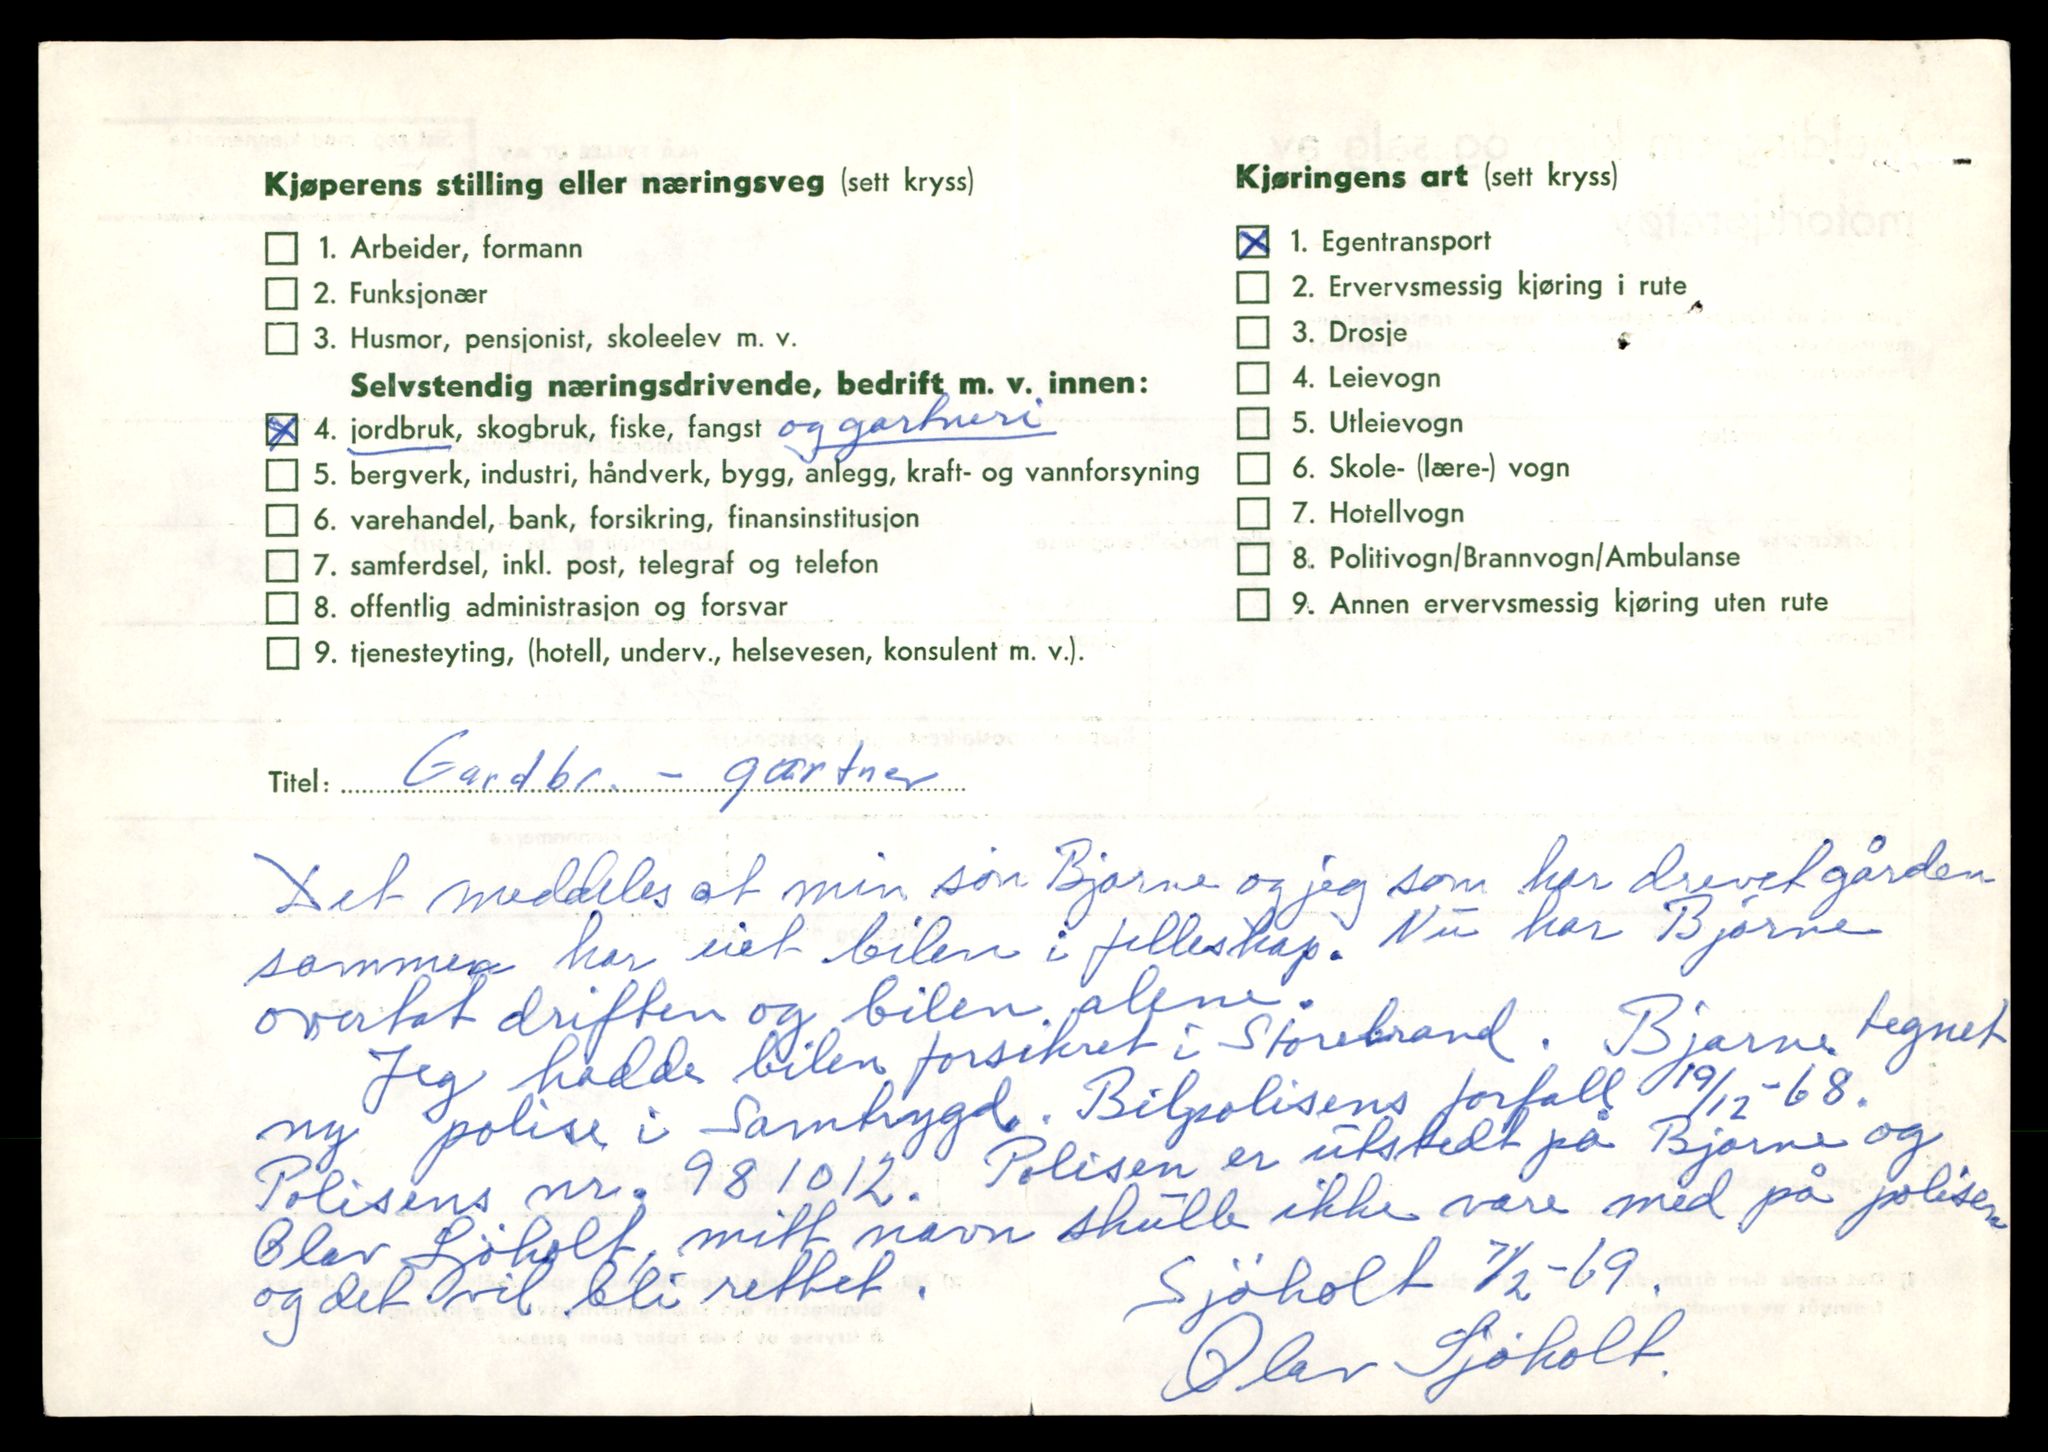 Kjøperens stilling eller næringsveg (sett kryss)
1. Arbeider, formann
2. Funksjonær
3. Husmor, pensjonist, skoleelev m. v.
Selvstendig næringsdrivende, bedrift m. v. innen:
4. jordbruk, skogbruk, fiske, fangst og gartneri
5. bergverk, industri, håndverk, bygg, anlegg, kraft- og vannforsyning
6. varehandel, bank, forsikring, finansinstitusjon
7. samferdsel, inkl. post, telegraf og telefon
8. offentlig administrasjon og forsvar
9. tjenesteyting, (hotell, underv., helsevesen, konsulent m. v.).
Kjøringens art (sett kryss)
1. Egentransport
2. Ervervsmessig kjøring i rute
3. Drosje
4. Leievogn
5. Utleievogn
6. Skole- (lære-) vogn
7. Hotellvogn
8. Politivogn/Brannvogn/Ambulanse
9. Annen ervervsmessig kjøring uten rute
Titel: Gardbr. - gartner
Det meddeles at min søn Bjarne og jeg som har drevet gården
sammen har eiet bilen i felleskap. Nu har Bjarne
overtat driften og bilen alene.
Jeg hadde bilen forsikret i Storebrand. Bjarne tegnet
ny polise i Samtrygd. Bilpolisens forfall 19/12-68.
Polisens nr. 981012. Polisen er utstedt på Bjarne og
Olav Sjøholt, mitt navn skulle ikke være med på polisen
og det vil bli rettet.
Sjøholt 7/2-69.
Olav Sjøholt.